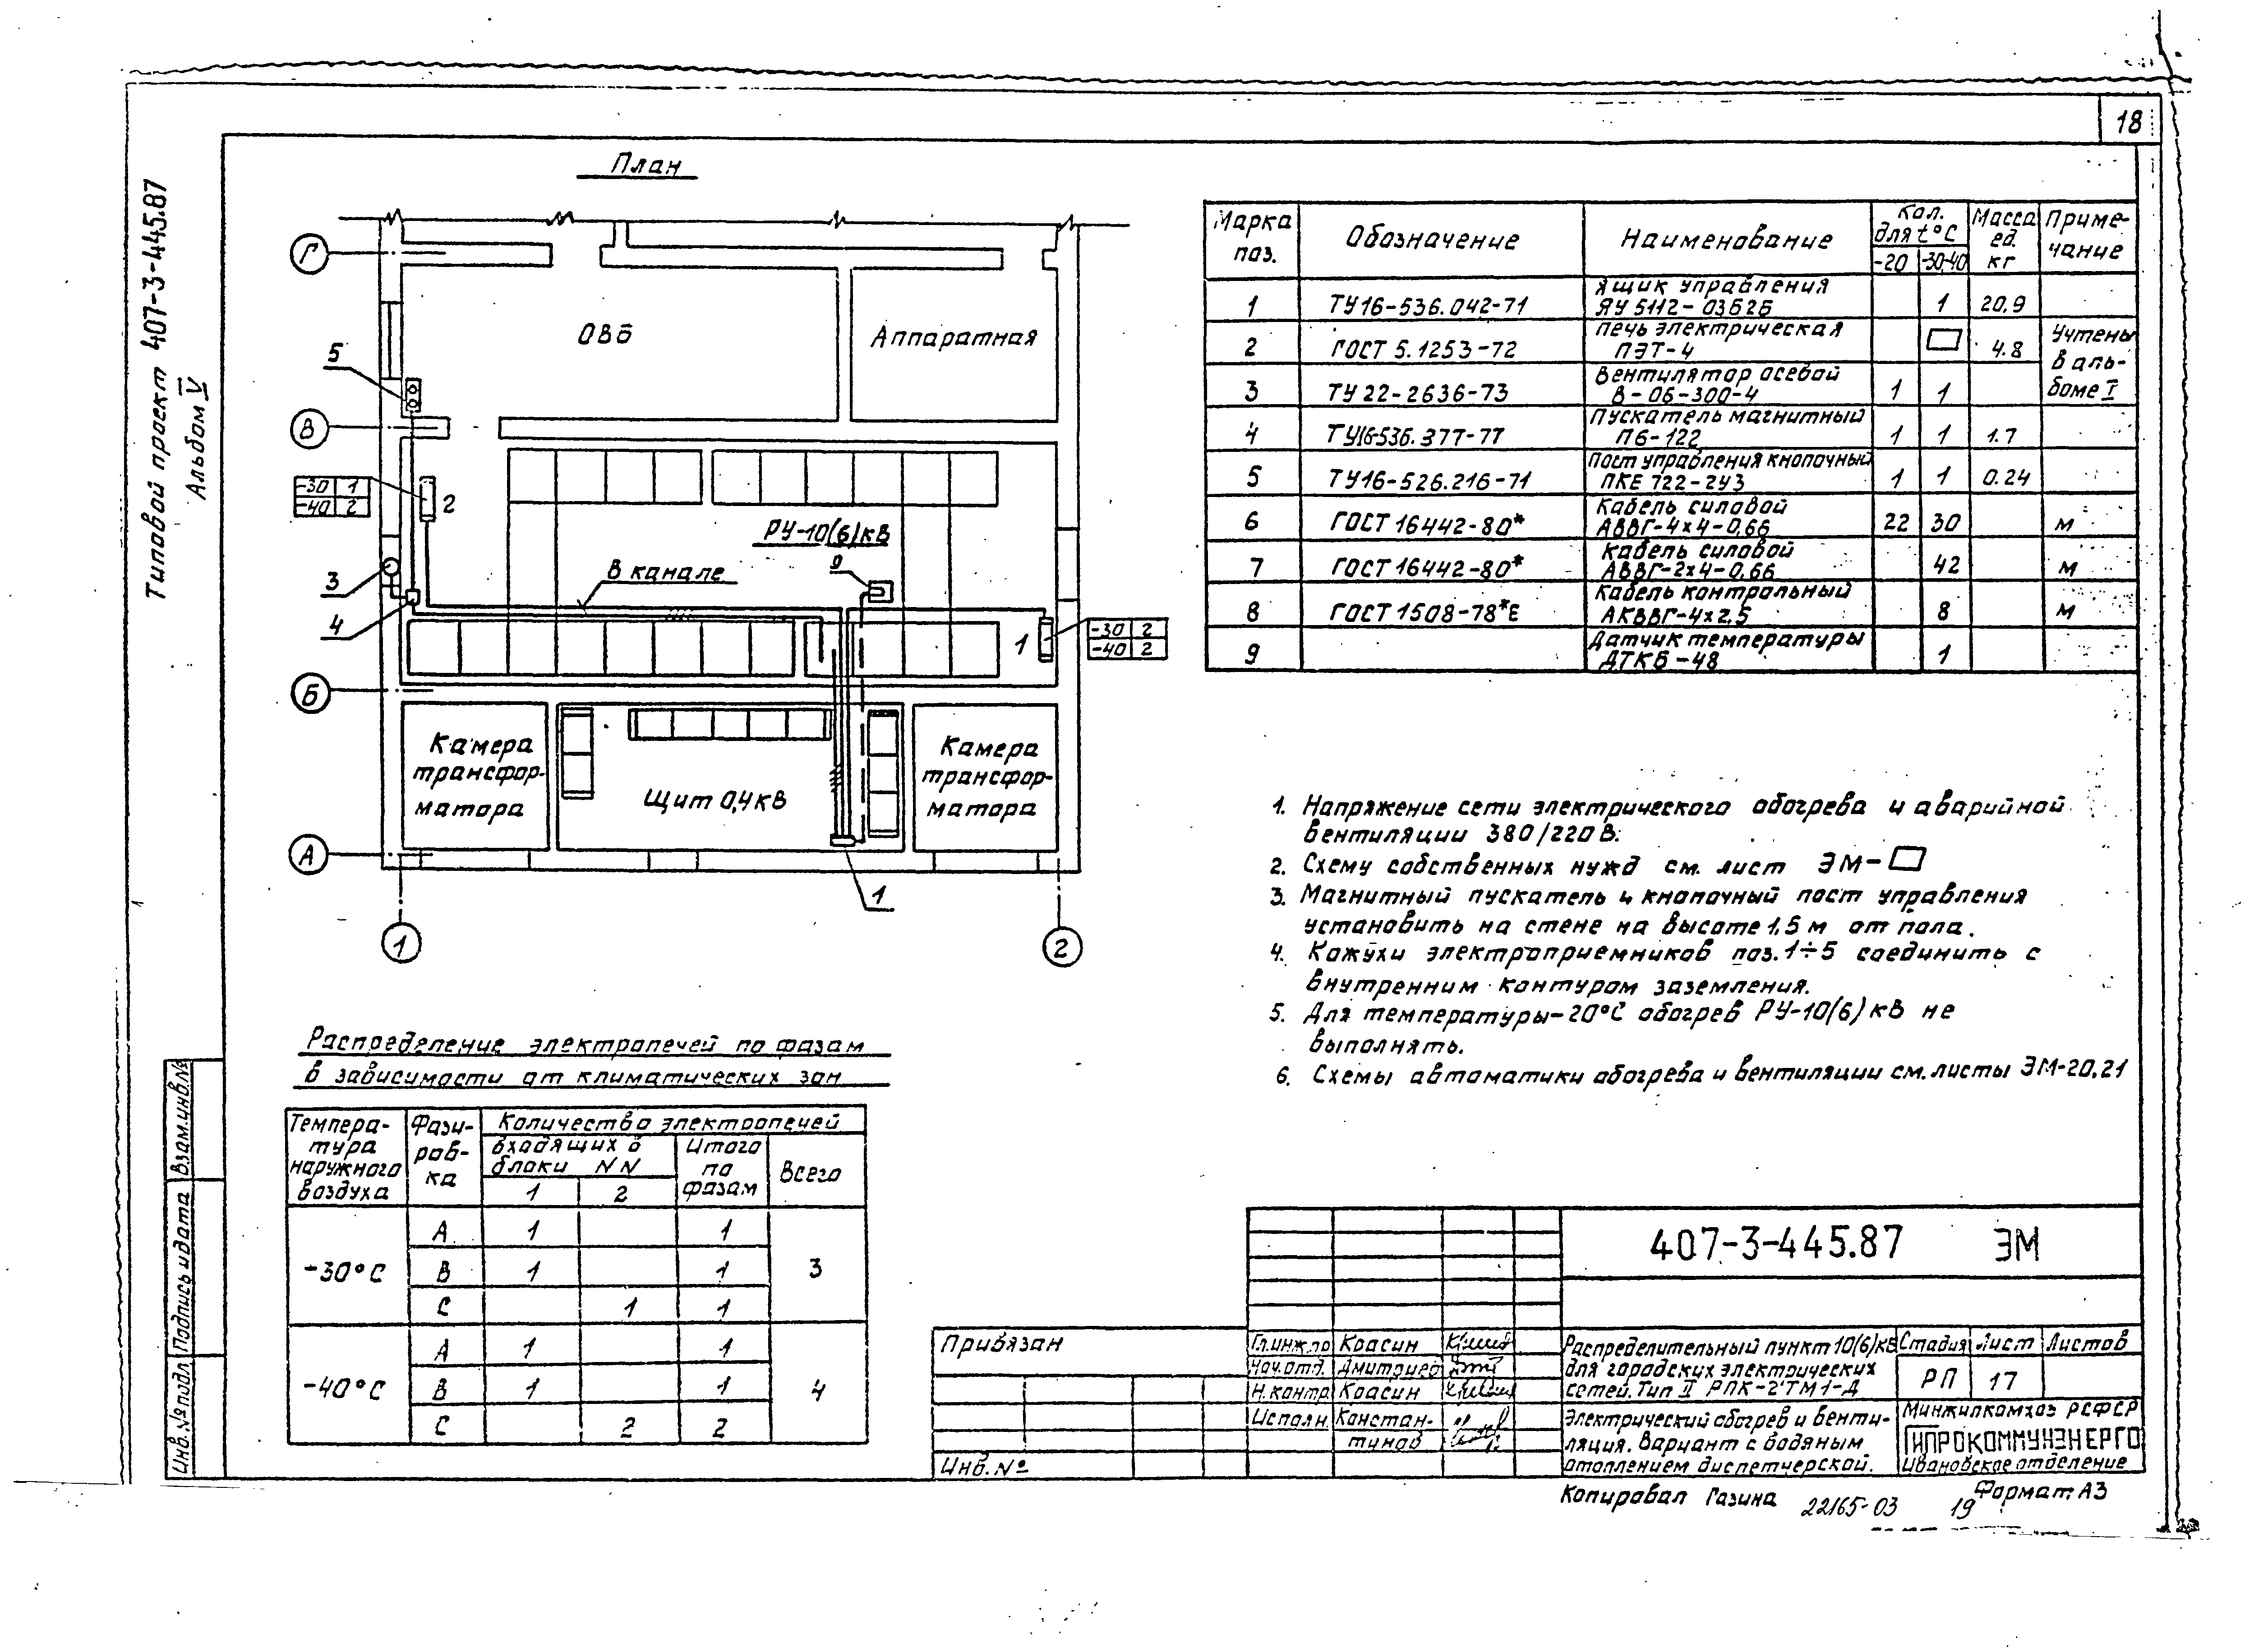 18
Типовой проект 407-3-445.87
Альбом V
План
Г
ОВБ
Аппаратная
5
В
-30 1
-40 2
2
РУ-10(6)кВ
9
В канале
3
4
1
-30 2
-40 2
Б
Камера
трансфор-
матора
Щит 0,4кВ
Камера
трансфор-
матора
А
1
1
2
Марка поз. Обозначение Наименование Кол. для t°С -20 -30-40 Масса ед. кг Примечание
1 ТУ16-536.042-71 Ящик управления 1 20,9
ЯУ 5112-03Б2Б
2 ГОСТ 5.1253-72 Печь электрическая 4.8 Учтены
ПЭТ-4 в аль-
3 ТУ 22-2636-73 Вентилятор осевой 1 1 боме I
В-06-300-4
4 ТУ16-536.377-77 Пускатель магнитный 1 1 1.7
П6-122
5 ТУ16-526.216-71 Пост управления кнопочный 1 1 0.24
ПКЕ 722-2У3
6 ГОСТ 16442-80* Кабель силовой 22 30 м
АВВГ-4х4-0,66
7 ГОСТ 16442-80* Кабель силовой 42 м
АВВГ-2х4-0,66
8 ГОСТ 1508-78*Е Кабель контрольный 8 м
АКВВГ-4х2,5
9 Датчик температуры 1
ДТКБ-48
1. Напряжение сети электрического обогрева и аварийной
вентиляции 380/220В.
2. Схему собственных нужд см. лист ЭМ-
3. Магнитный пускатель и кнопочный пост управления
установить на стене на высоте 1,5 м от пола.
4. Кожухи электроприемников поз. 1÷5 соединить с
внутренним контуром заземления.
5. Для температуры-20°С обогрев РУ-10(6)кВ не
выполнять.
6. Схемы автоматики обогрева и вентиляции см. листы ЭМ-20,21
Распределение электропечей по фазам
в зависимости от климатических зон
Температура наружного воздуха Фазировка Количество электропечей
входящих в блоки NN 1 2 Итого по фазам Всего
-30°С А 1 1 3
В 1 1
С 1 1
-40°С А 1 1 4
В 1 1
С 2 2
Взам.инв.№
Подпись и дата
Инв.№подл
407-3-445.87 ЭМ
Привязан
Инв. №
Гл.инж.пр Коасин
Нач.отд. Дмитриев
Н.контр. Коасин
Исполн. Констан-
тинов
Распределительный пункт 10(6)кВ
для городских электрических
сетей. Тип II РПК-2ТМ1-Д
Стадия Лист Листов
РП 17
Электрический обогрев и венти-
ляция. Вариант с водяным
отоплением диспетчерской.
Минжилкомхоз РСФСР
ГИПРОКОММУНЭНЕРГО
Ивановское отделение
Копировал Газина 22165-03 19 Формат А3